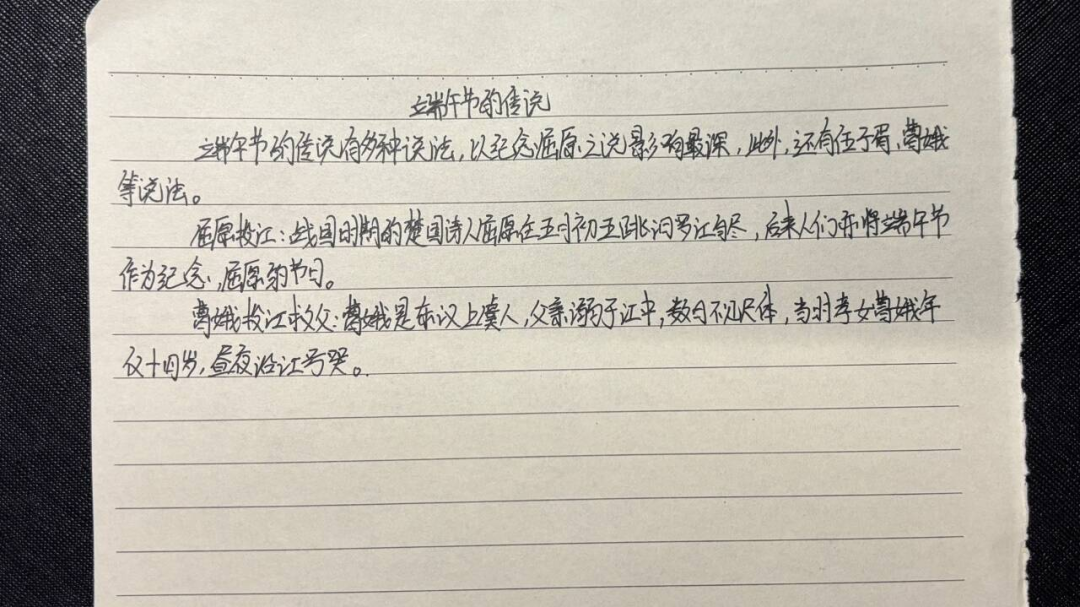 端午节的传说
端午节的传说有多种说法,以纪念屈原之说影响最深,此外,还有伍子胥、曹娥
等说法。
屈原投江:战国时期的楚国诗人屈原在五月初五跳汨罗江自尽,后来人们亦将端午节
作为纪念屈原的节日。
曹娥投江救父:曹娥是东汉上虞人,父亲溺于江中,数日不见尸体,当时孝女曹娥年
仅十四岁,昼夜沿江号哭。